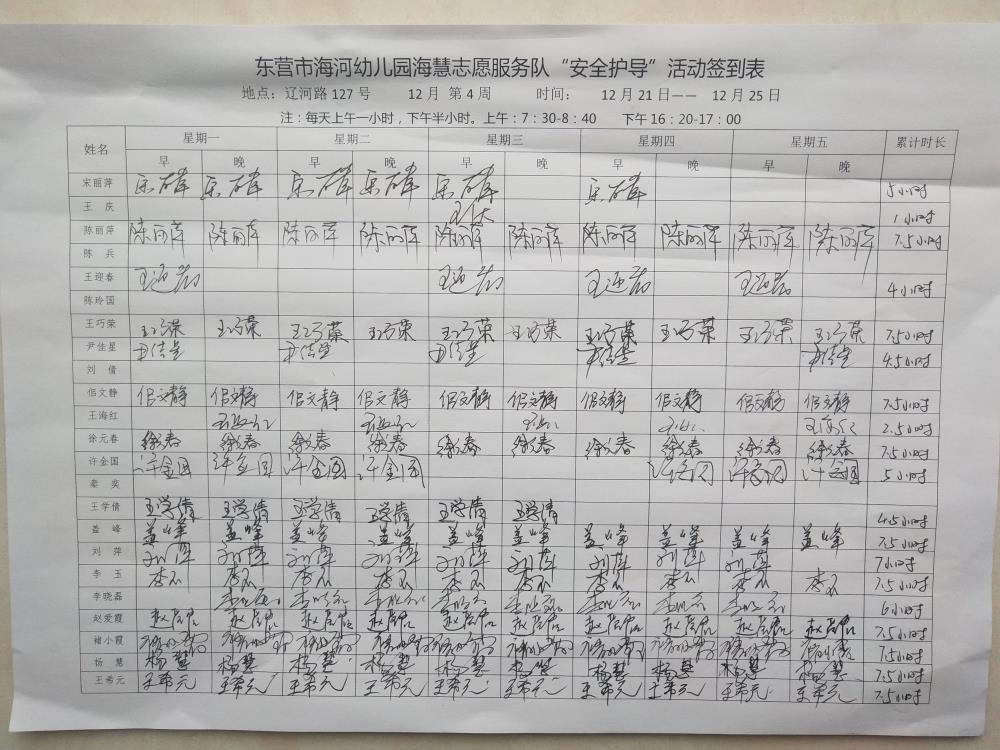 东营市海河幼儿园海慧志愿服务队“安全护导”活动签到表
地点：辽河路 127 号 12月 第 4 周 时间： 12 月 21 日—— 12 月 25 日
注：每天上午一小时，下午半小时。上午：7：30-8：40 下午 16：20-17：00
姓名 星期一 星期二 星期三 星期四 星期五 累计时长
早 晚 早 晚 早 晚 早 晚 早 晚
宋丽萍 5小时
王 庆 王庆 1小时
陈丽萍 陈丽萍 陈丽萍 陈丽萍 陈丽萍 陈丽萍 陈丽萍 陈丽萍 陈丽萍 陈丽萍 陈丽萍 7.5小时
陈 兵
王迎春 王迎春 王迎春 王迎春 王迎春 4小时
陈玲国
王巧荣 王巧荣 王巧荣 王巧荣 王巧荣 王巧荣 王巧荣 王巧荣 王巧荣 王巧荣 王巧荣 7.5小时
尹佳星 尹佳星 尹佳星 尹佳星 尹佳星 尹佳星 4.5小时
刘 倩
佀文静 佀文静 佀文静 佀文静 佀文静 佀文静 佀文静 佀文静 佀文静 佀文静 佀文静 7.5小时
王海红 王海红 王海红 王海红 王海红 王海红 2.5小时
徐元春 徐元春 徐元春 徐元春 徐元春 徐元春 徐元春 徐元春 徐元春 徐元春 徐元春 7.5小时
许金国 许金国 许金国 许金国 许金国 许金国 许金国 许金国 5小时
秦 奕
王学倩 王学倩 王学倩 王学倩 王学倩 王学倩 王学倩 4.5小时
盖 峰 盖峰 盖峰 盖峰 盖峰 盖峰 盖峰 盖峰 盖峰 盖峰 盖峰 7.5小时
刘 萍 刘萍 刘萍 刘萍 刘萍 刘萍 刘萍 刘萍 刘萍 刘萍 7小时
李 玉 李玉 李玉 李玉 李玉 李玉 李玉 李玉 李玉 李玉 李玉 7.5小时
李晓磊 李晓磊 李晓磊 李晓磊 李晓磊 李晓磊 李晓磊 李晓磊 李晓磊 6小时
赵爱霞 7.5小时
褚小霞 7.5小时
杨 慧 杨慧 杨慧 杨慧 杨慧 杨慧 杨慧 杨慧 杨慧 杨慧 杨慧 7.5小时
王希元 王希元 王希元 王希元 王希元 王希元 王希元 王希元 王希元 王希元 王希元 7.5小时